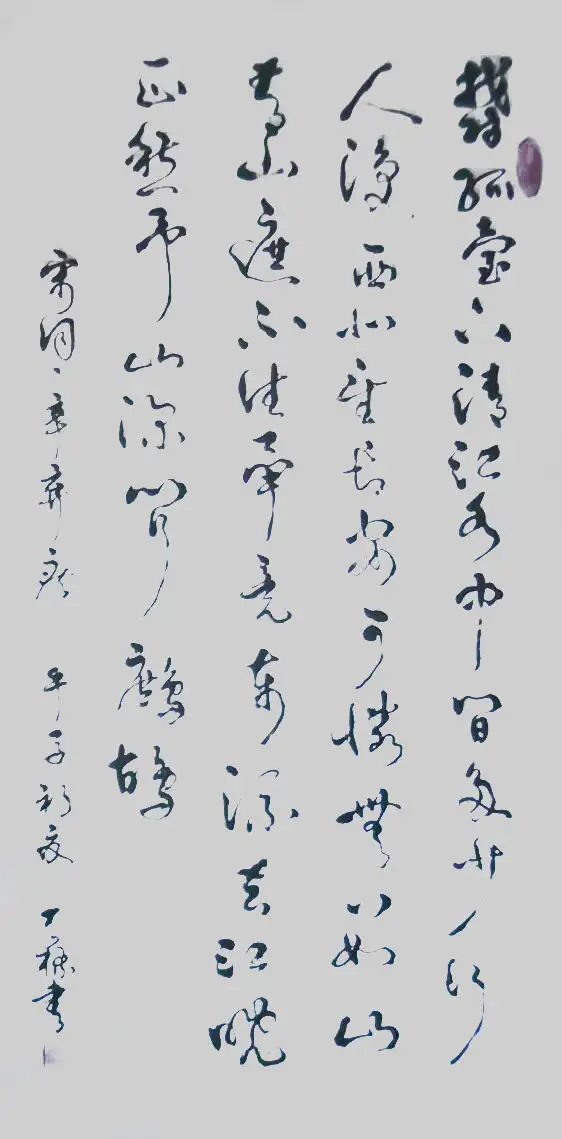 鬱孤臺下清江水中間多少行
人淚西北望長安可憐無數山
青山遮不住畢竟東流去江晚
正愁予山深聞鷓鴣
宋詞一章辛棄疾 子初夏 書